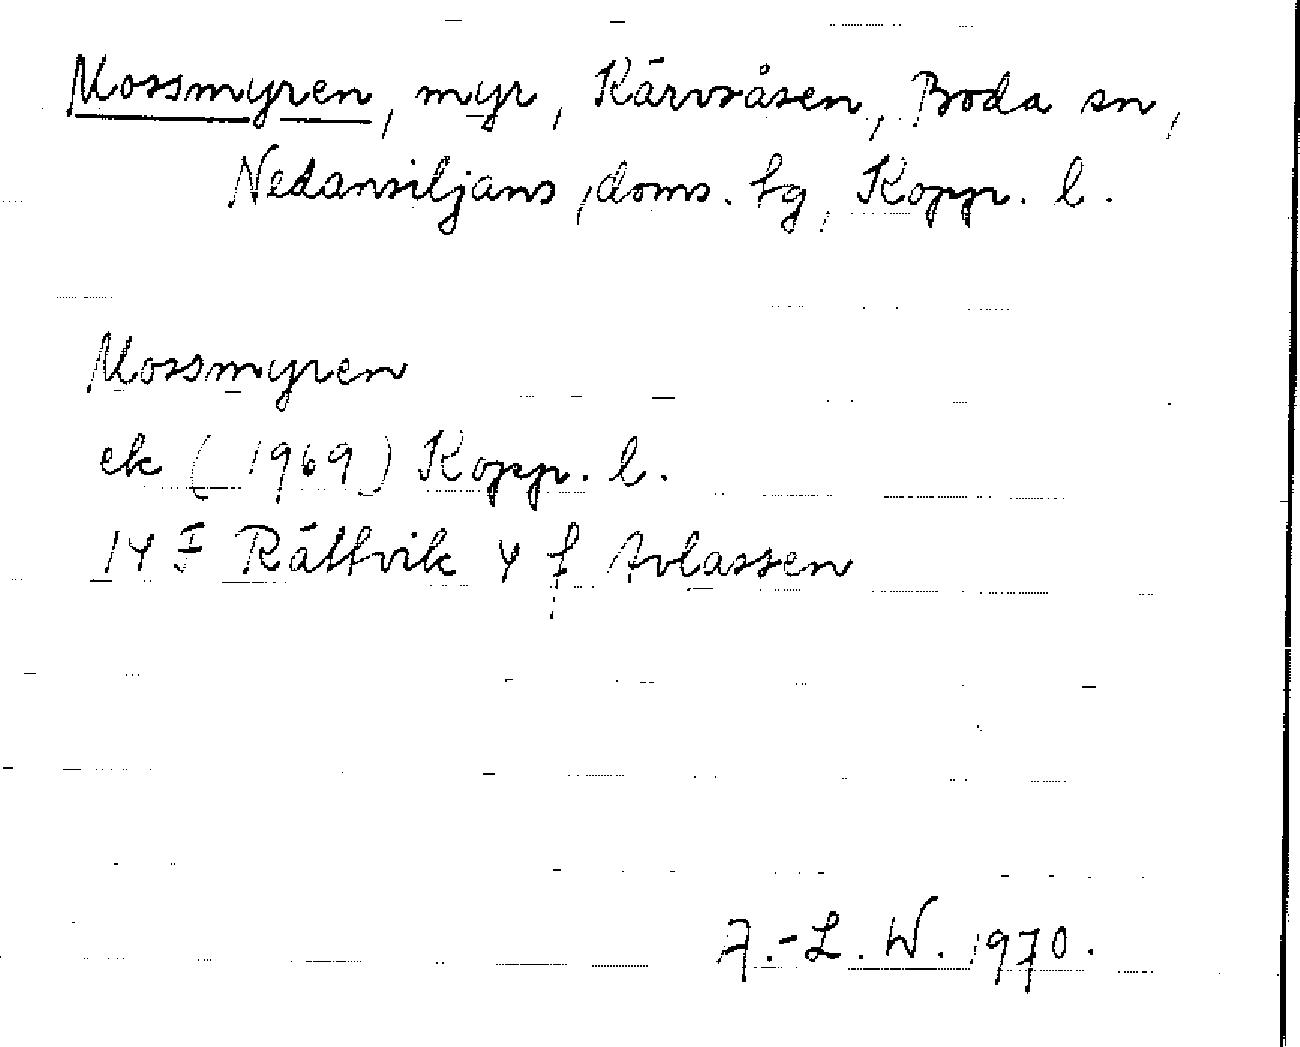 Mossmyren, myr, Kärvsåsen, Boda sn,
Nedansiljans, doms. hg, Kopp. l.
Mossmyren
ek (1969) Kopp. l.
14 F Rättvik 4 f Avlassen
A.-L. W. 1970.